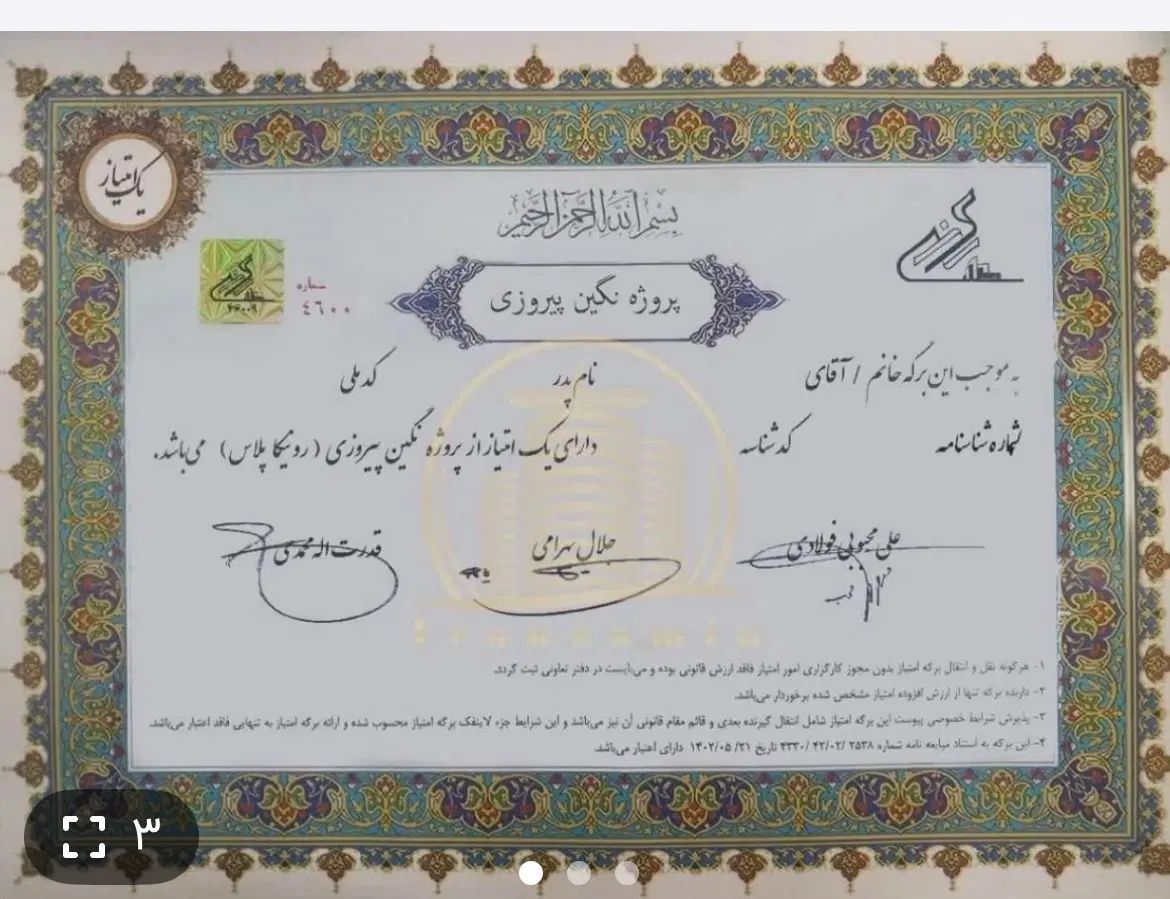 یک امتیاز
بسم الله الرحمن الرحیم
شماره
٤٦٠٠
٤٦٠٠٩
پروژه نگین پیروزی
به موجب این برگه خانم / آقای نام پدر کد ملی
شماره شناسنامه کد شناسه دارای یک امتیاز از پروژه نگین پیروزی (رونیکا پلاس) می‌باشد.
علی محبوبی فولادی جلال بهرامی قدرت اله محمدی
۱- هرگونه نقل و انتقال برگه امتیاز بدون مجوز کارگزاری امور امتیاز فاقد ارزش قانونی بوده و می‌بایست در دفتر تعاونی ثبت گردد.
۲- دارنده برگه تنها از ارزش افزوده امتیاز مشخص شده برخوردار می‌باشد.
۳- پذیرش شرایط خصوصی پیوست این برگه امتیاز شامل انتقال گیرنده بعدی و قائم مقام قانونی آن نیز می‌باشد و این شرایط جزء لاینفک برگه امتیاز محسوب شده و ارائه برگه امتیاز به تنهایی فاقد اعتبار می‌باشد.
۴- این برگه به استناد مبایعه نامه شماره ۲۵۳۸ /۴۲/۰۲ /۴۳۳۰ تاریخ ۲۱/ ۱۴۰۲/۰۵ دارای اعتبار می‌باشد.
۳